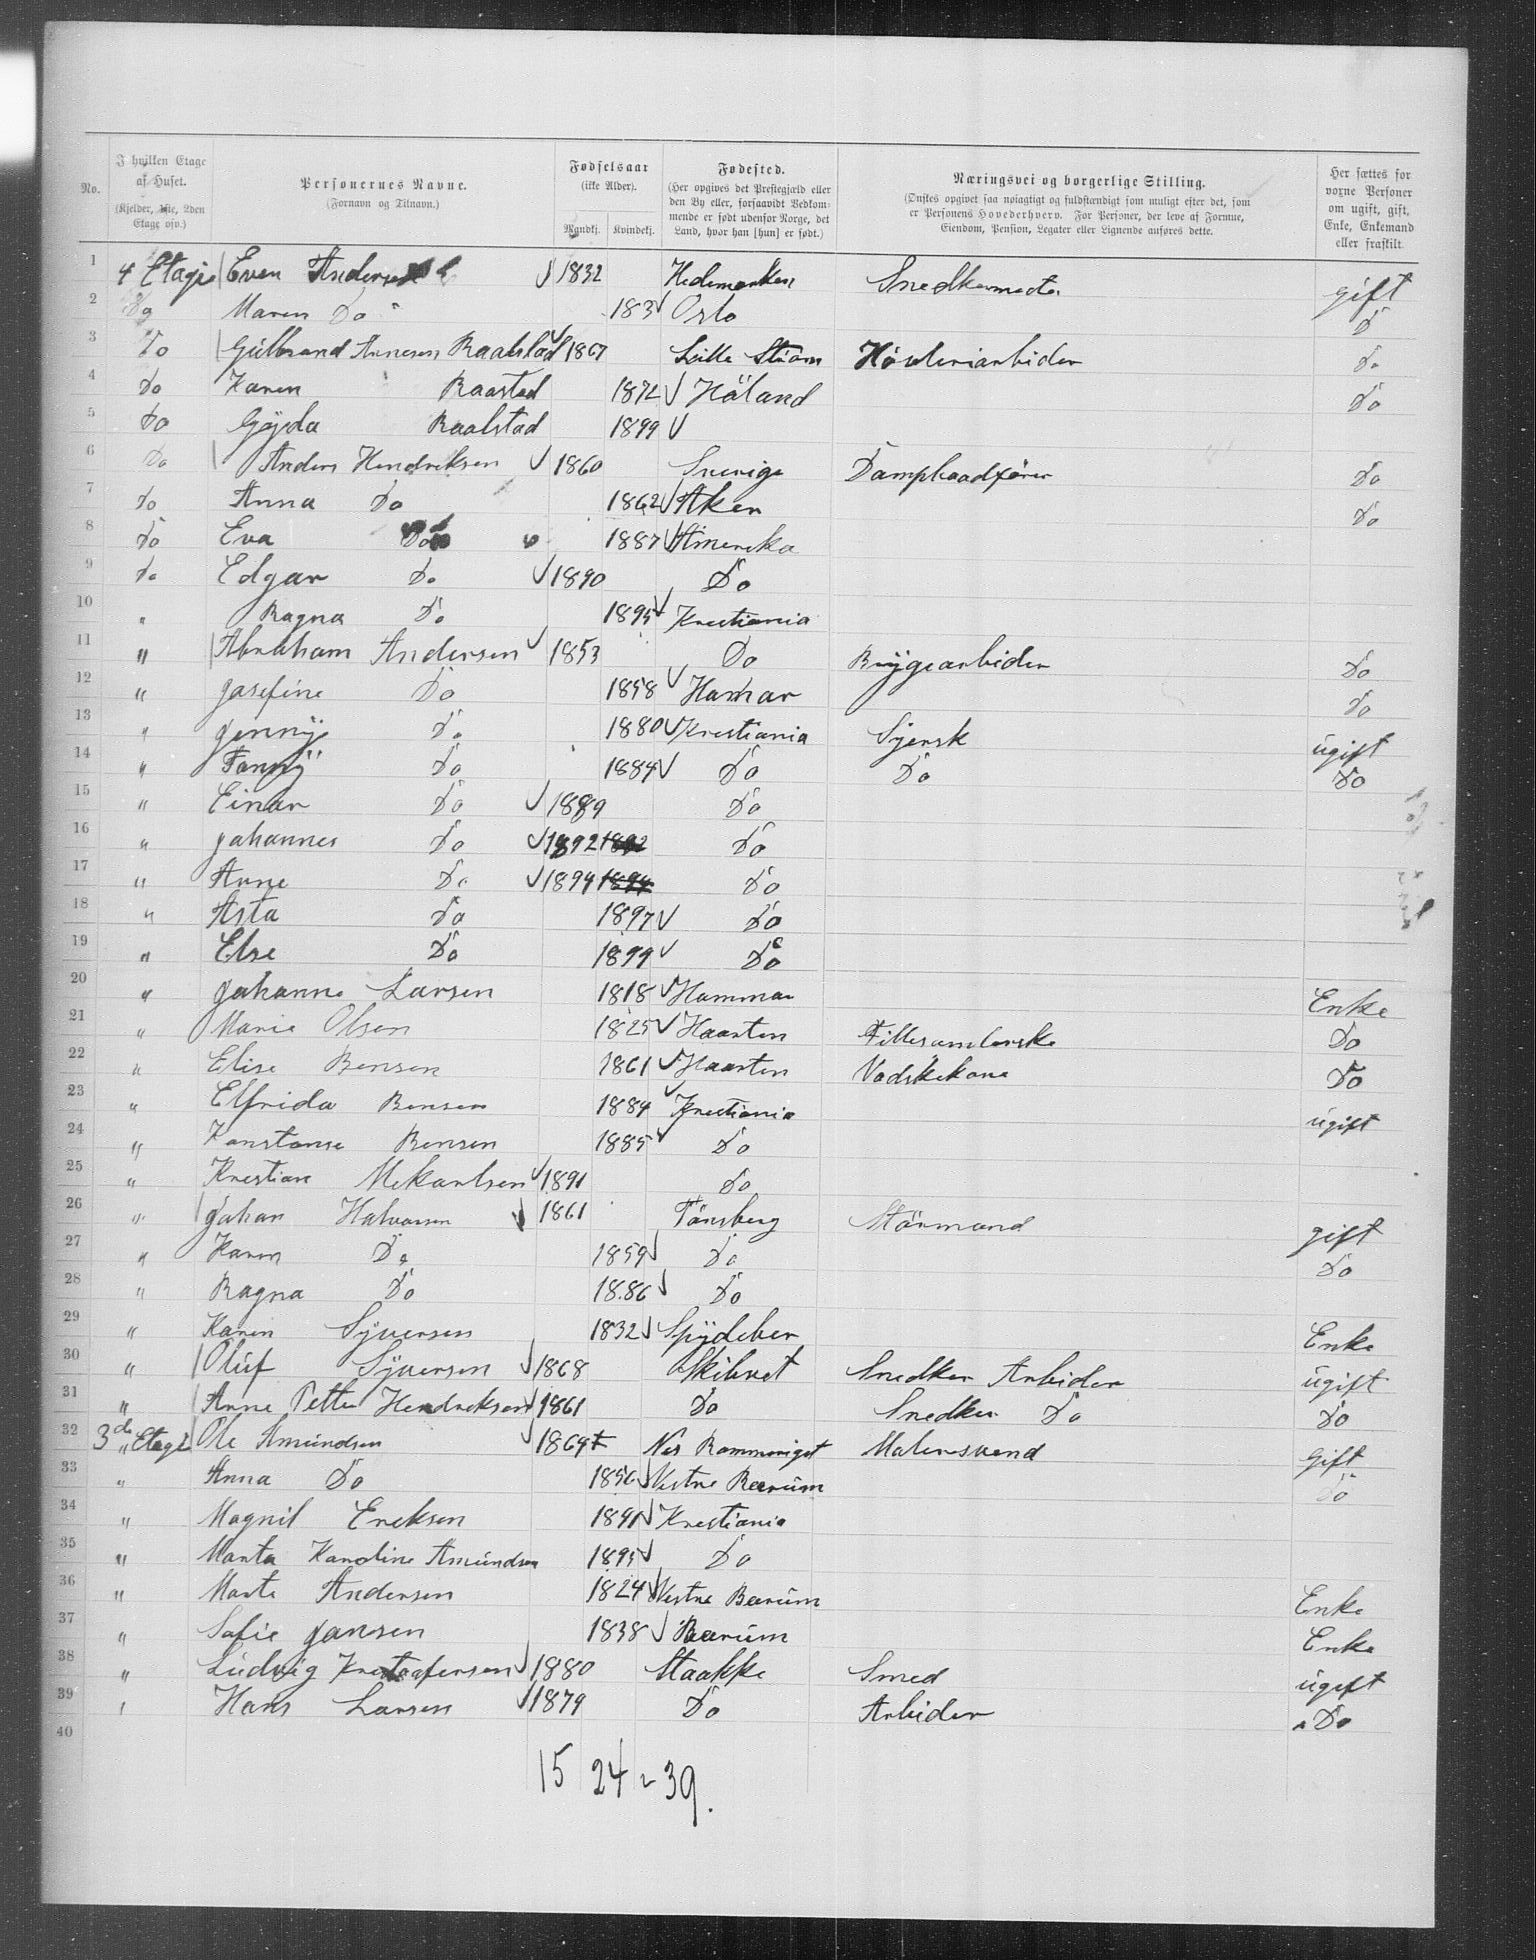 No. | I hvilken Etage af Huset. (Kjelder, 1ste, 2den Etage osv.) | Personernes Navne. (Fornavn og Tilnavn.) | Fødselsaar (ikke Alder). Mandkj. Kvindekj. | Fødested. (Her opgives det Prestegjæld eller den By eller, forsaavidt Vedkommende er født udenfor Norge, det Land, hvor han [hun] er født.) | Næringsvei og borgerlige Stilling. (Ønskes opgivet saa nøiagtigt og fuldstændigt som muligt efter det, som er Personens Hovederhverv. For Personer, der leve af Formue, Eiendom, Pension, Legater eller Lignende anføres dette.) | Her sættes for voxne Personer om ugift, gift, Enke, Enkemand eller fraskilt.
1 4 Etagie Even Andersen 1832 Hedemarken Snedkermester gift
2 Do Maren Do 183 Oslo Do
3 Do Gulbrand Arnesen Raalstad 1867 Lille Strøm Høvleriarbider Do
4 Do Karen Raastad 1872 Höland Do
5 Do Göyda Raalstad 1899
6 Do Anders Hendriksen 1860 Sverige Dampbaadförer Do
7 Do Anna Do 1862 Aker Do
8 Do Eva Do 1887 Amerika
9 Do Edgar Do 1890 Do
10 " Ragna Do 1895 Krestiania
11 " Abraham Andersen 1853 Do Brygearbider Do
12 " Josefine Do 1858 Hamar Do
13 " Jenny Do 1880 Krestiania Syersk ugift
14 " Fanny Do 1884 Do Do Do
15 " Einar Do 1889 Do
16 " Johannes Do 1892 1892 Do
17 " Arne Do 1894 1894 Do
18 " Asta Do 1897 Do
19 " Else Do 1899 Do
20 " Johanne Larsen 1818 Hammar Enke
21 " Marie Olsen 1825 Haarten Fillesamlerske Do
22 " Elise Bensen 1861 Haarten Vadskekone Do
23 " Elfrida Bensen 1884 Krestiania ugift
24 " Konstanse Bensen 1885 Do
25 " Krestian Mekarlsen 1891 Do
26 " Johan Halvorsen 1861 Tönsberg Störmand gift
27 " Karen Do 1859 Do Do
28 " Ragna Do 1886 Do
29 " Karen Syversen 1832 Spydeber Enke
30 " Oluf Syversen 1868 Skibvet Snedker Arbider ugift
31 " Arne Petter Hendriksen 1861 Do Snedker Do Do
32 3de Etage Ole Amundsen 1869 Nes Rommeriget Malersvend gift
33 " Anna Do 1856 Vestre Bærum Do
34 " Magnil Ereksen 1891 Krestiania
35 " Marta Karoline Amundsen 1895 Do
36 " Marte Andersen 1824 Vestre Bærum Enke
37 " Sofie Jansen 1838 Bærum Enke
38 " Ludvig Krestoafersen 1880 Staakke Smed ugift
39 " Hans Larsen 1879 Do Arbider Do
40
15 24 = 39.